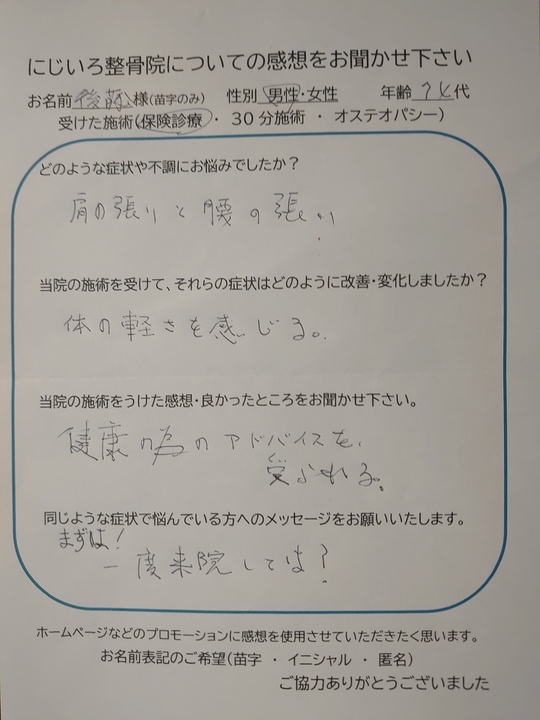 にじいろ整骨院についての感想をお聞かせ下さい
お名前 後藤 様(苗字のみ) 性別 男性・女性 年齢 74代
受けた施術(保険診療 ・ 30分施術 ・ オステオパシー)
どのような症状や不調にお悩みでしたか?
肩の張りと腰の張り
当院の施術を受けて、それらの症状はどのように改善・変化しましたか?
体の軽さを感じる。
当院の施術をうけた感想・良かったところをお聞かせ下さい。
健康の為のアドバイスを、
受られる。
同じような症状で悩んでいる方へのメッセージをお願いいたします。
まずは!
一度来院しては?
ホームページなどのプロモーションに感想を使用させていただきたく思います。
お名前表記のご希望(苗字 ・ イニシャル ・ 匿名)
ご協力ありがとうございました